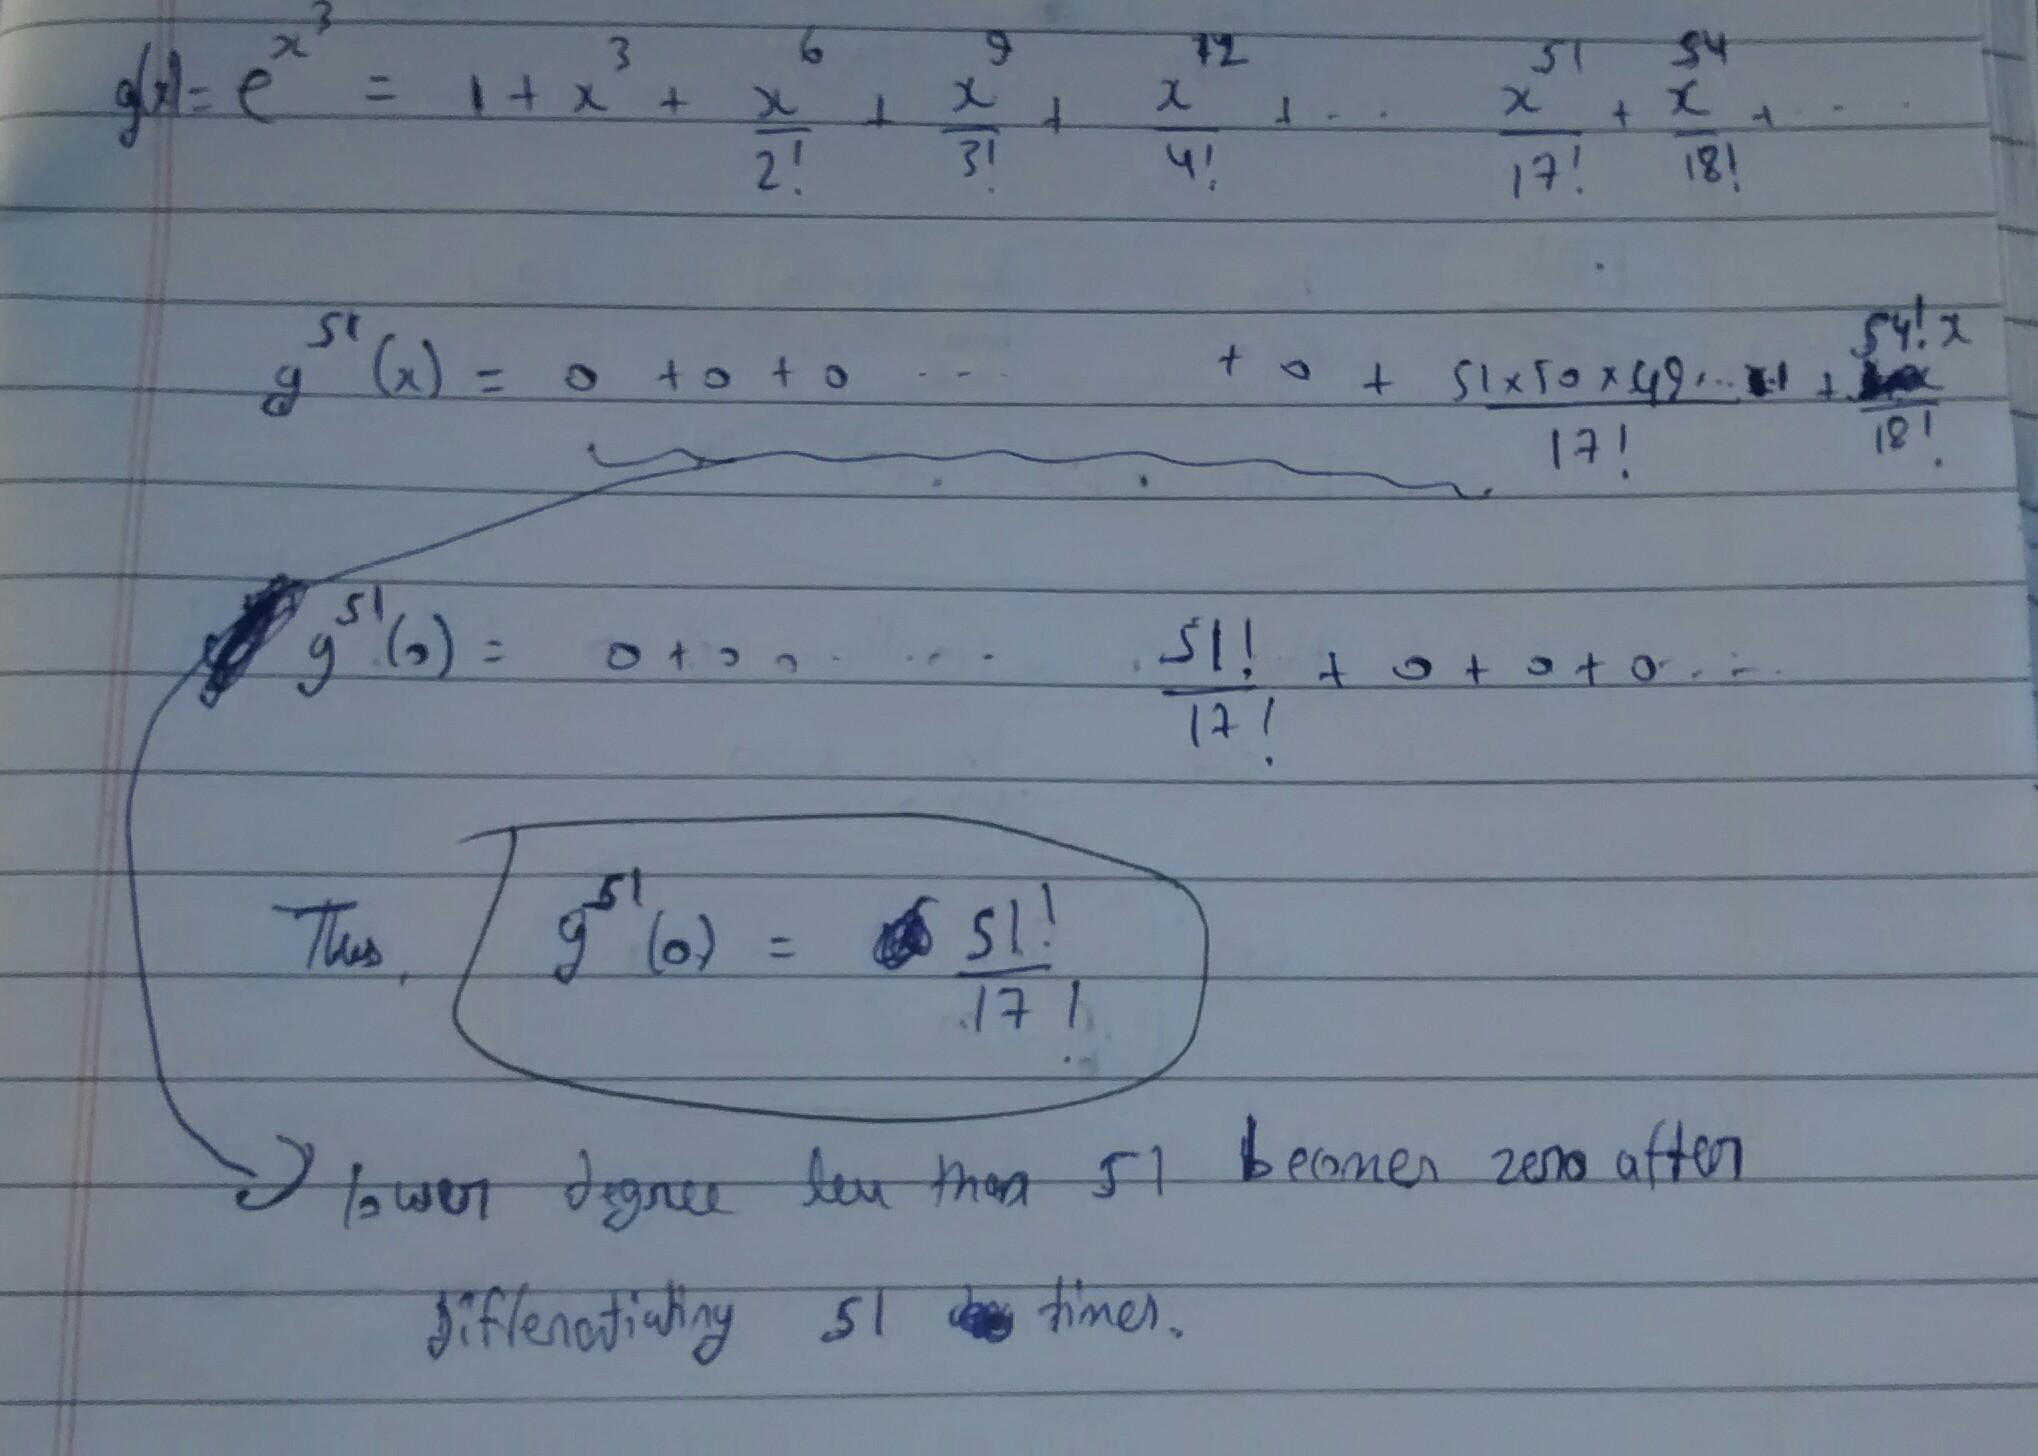 g(x) = e^x^3 = 1 + x^3 + x^6/2! + x^9/3! + x^12/4! + ... x^51/17! + x^54/18! + ...
g^51(x) = 0 + 0 + 0 ... + 0 + 51×50×49...×1/17! + 54!x/18!
g^51(0) = 0 + 0 0 ... 51!/17! + 0 + 0 + 0 ...
Thus, g^51(0) = 51!/17!
lower degree less than 51 becomes zero after
differentiating 51 times.